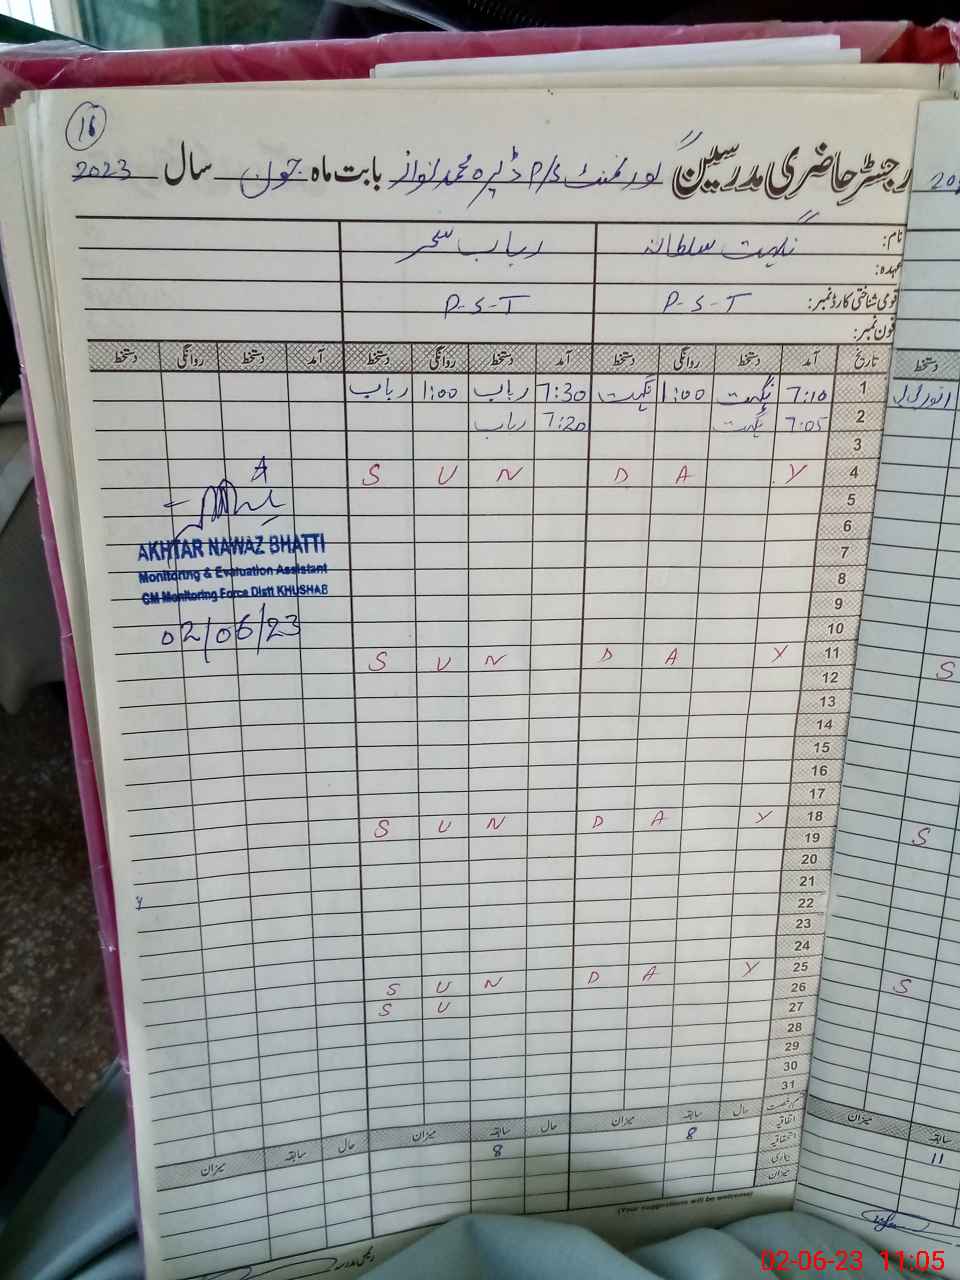 16
رجسٹر حاضری مدرسین گورنمنٹ P/S ڈیرہ محمد نواز بابت ماہ جون سال 2023
نام: نگہت سلطانہ رباب سحر
عہدہ:
قومی شناختی کارڈ نمبر: P-S-T P-S-T
فون نمبر:
تاریخ آمد دستخط روانگی دستخط آمد دستخط روانگی دستخط آمد دستخط روانگی دستخط
1 7:10 نگہت 1:00 نگہت 7:30 رباب 1:00 رباب
2 7:05 نگہت 7:20 رباب
3
4 S U N D A Y
5
6
7
8
9
10
11 S U N D A Y
12
13
14
15
16
17
18 S U N D A Y
19
20
21
22
23
24
25 S U N D A Y
26 S U
27
28
29
30
31
AKHTAR NAWAZ BHATTI
Monitoring & Evaluation Assistant
CM Monitoring Force Distt KHUSHAB
02/06/23
حال سابقہ میزان حال سابقہ میزان حال سابقہ میزان
اتفاقیہ 8 8
استحقاقیہ
بیماری
میزان
(Your suggestions will be welcome)
دستخط
S
S
S
میزان سابقہ
11
02-06-23 11:05